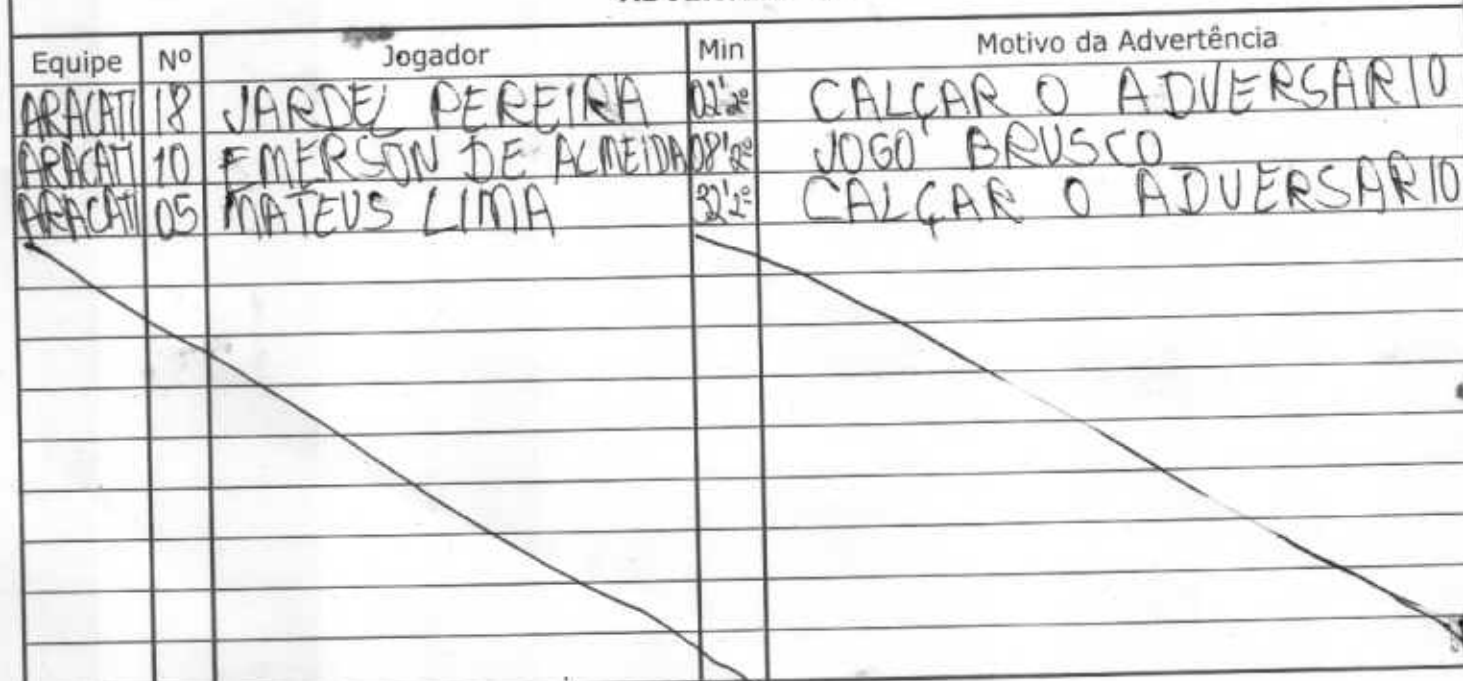 Equipe Nº Jogador Min Motivo da Advertência
ARACATI 18 JARDEL PEREIRA 02' 2º CALÇAR O ADVERSARIO
ARACATI 10 EMERSON DE ALMEIDA 08' 2º JOGO BRUSCO
ARACATI 05 MATEUS LIMA 32' 2º CALÇAR O ADVERSARIO